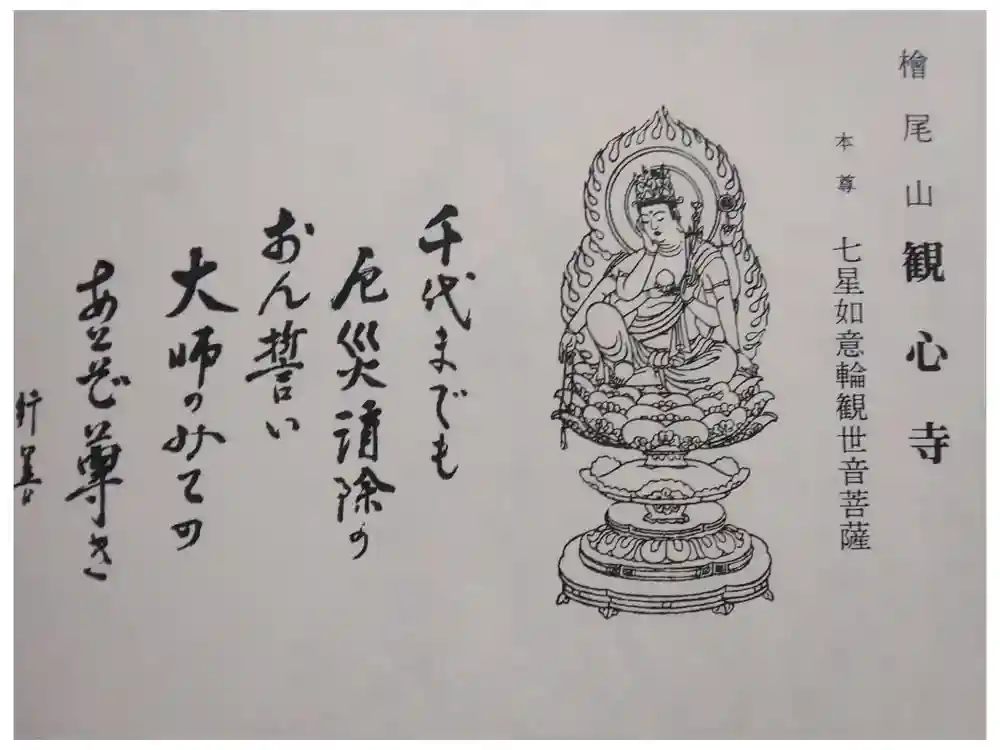 檜尾山観心寺
本尊 七星如意輪観世音菩薩
千代までも
厄災消除の
おん誓い
大師のみての
あとぞ尊き